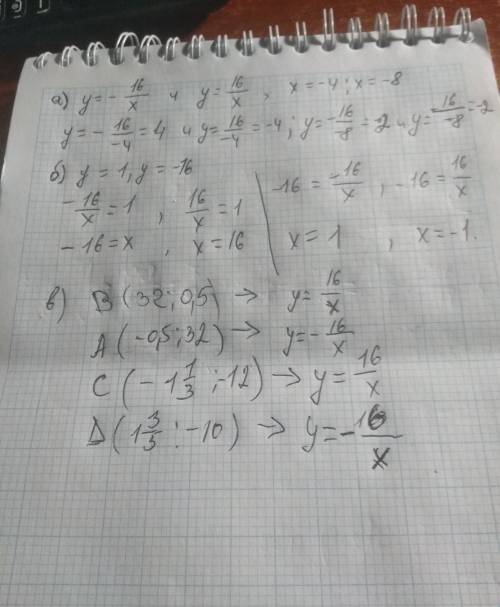 а) y = - 16/x и y = 16/x , x = -4; x = -8
y = - 16/-4 = 4 и y = 16/-4 = -4; y = - 16/-8 = 2 и y = 16/-8 = -2
б) y = 1, y = -16
- 16/x = 1 , 16/x = 1 | -16 = -16/x , -16 = 16/x
-16 = x , x = 16 | x = 1 , x = -1.
в) B (32; 0,5) → y = 16/x
A (-0,5; 32) → y = - 16/x
C (-1 1/3 ; -12) → y = 16/x
D (1 3/5 ; -10) → y = - 16/x